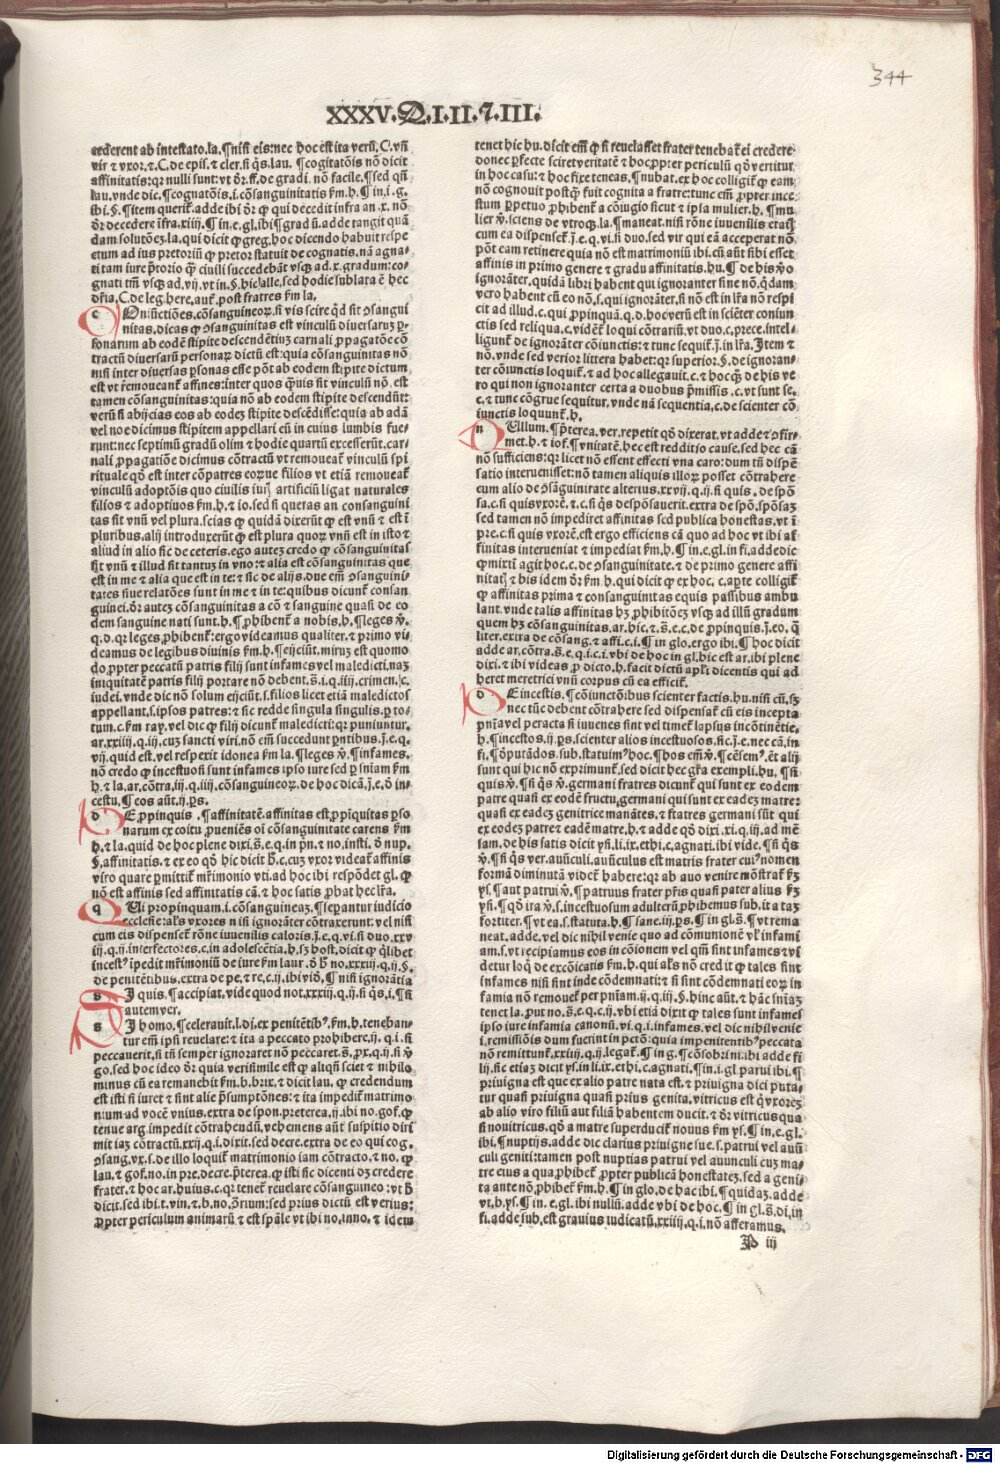 344
XXXV.Q.I.II.⁊.III.
cederent ab intestato.la.¶nisi eis:nec hoc est ita verū.C.vn̄
vir ⁊ vxor.⁊.C.de epis.⁊ cler.si q̄s.lau. ¶cogitatōis nō dicit
affinitatis:qr nulli sunt:vt dr̄.ff.de gradi.nō facile.¶sed qn̄
lau.vnde dic.¶cognatōis.i.cōsanguinitatis ẜm.h.¶in.i.g.
dam solutōez.la.qui dicit ꝙ greg.hoc dicendo habuit respe
ctum ad ius pretoriū ꝙ pretor statuit de cognatis.nā agna⸗
ti tam iure p̄torio ꝙ̄ ciuili succedebāt vsꝗ ad.x.gradum:co⸗
gnati tm̄ vsꝗ ad.vij.vt in.§.hic
dr̄ia.C.de leg.here.aut̄.post fratres ẜm la.
nitas.dicas ꝙ ꝯsanguinitas est vinculū diuersaruꝫ ꝑ⸗
sonarum ab eodē stipite descendētiuꝫ carnali ꝓpagatōe cō
tractū diuersarū personaꝝ dictū est:quia cōsanguinitas nō
nisi inter diuersas ꝑsonas esse pōt ab eodem stipite dictum
est vt r̄emoueant̄ affines:inter quos q̄uis sit vinculū nō.est
tamen cōsanguinitas:quia nō ab eodem stipite descendūt
verū si abijcias eos ab eodeꝫ stipite descēdisse:quia ab adā
vel noe dicimus stipitem appellari cū in cuius lumbis fue⸗
runt:nec septimū gradū olim ⁊ hodie quartū excesserūt.car⸗
nali ꝓpagatiōe dicimus cōtractū vt remoueat̄ vinculū spi
rituale qd̄ est inter cōpatres eoꝝue filios vt etiā remoueat̄
vinculū adoptōis quo ciuilis iurꝭ artificiū ligat naturales
filios ⁊ adoptiuos ẜm.h.⁊ io.sed si queras an consanguini
tas sit vnū vel plura.scias ꝙ quidā dixerūt ꝙ est vnū ⁊ est ī
pluribus.alij introduxerūt ꝙ est plura quoꝝ vnū est in isto ⁊
aliud in alio sic de ceteris.ego auteꝫ credo ꝙ cōsanguinitas
sit vnū ⁊ illud sit tantuꝫ in vno:⁊ alia est cōsanguinitas que
est in me ⁊ alia que est in te:⁊ sic de alijs.due em̄ ꝯsanguini⸗
tates siue relatōes sunt in me ⁊ in te:quibus dicunt̄ consan
guinei.dr̄ autez cōsanguinitas a cō ⁊ sanguine quasi de eo
dem sanguine nati sunt.h.¶ꝓhibent̄ a nobis.h.¶leges v̄.
q.d.qr leges ꝓhibent̄:ergo videamus qualiter.⁊ primo vi⸗
deamus de legibus diuinis ẜm.h.¶eijciūt.miruꝫ est quomo
do ꝓpter peccatū patris filij sunt infames vel maledicti.naꝫ
inquitatē patris filij portare nō debent.s̄.i.q.iiij.crimen.⁊c.
iudei.vnde dic nō solum eijciūt.s.filios licet etiā maledictos
appellant.s.ipsos patres:⁊ sic redde singula singulis.ꝑ to⸗
tum.c.ẜm ray.vel dic ꝙ filij dicunt̄ maledicti:qr puniuntur.
ar.xxiij.q.iij.cuꝫ sancti viri.nō em̄ succedunt ꝑntibus.j̄.e.q.
vij.quid est.vel respexit idonea ẜm la.¶leges v̄.¶infames.
nō credo ꝙ incestuosi sunt infames ipso iure sed ꝑ sniam ẜm
h.⁊ la.ar.cōtra.iij.q.iiij.cōsanguineoꝝ.de hoc dicā.j̄.e.ꝺ̄ in⸗
cestu.¶eos aūt.ij.ꝑs.
d E ꝓpinquis .¶affinitatē.affinitas est ꝓpīquitas ꝑso
narum ex coitu ꝓueniēs oī cōsanguinitate carens ẜm
h.⁊ la.quid de hoc plene dixi.s̄.e.q.in pn̄.⁊ no.insti.ꝺ̄ nup.
§.affinitatis.⁊ ex eo qd̄ hic dicit h̄.c.cuꝫ vxor videat̄ affinis
viro quare ꝑmittit̄ mr̄imonio vti.ad hoc ibi respōdet gl.ꝙ
nō est affinis sed affinitatis cā.⁊ hoc satis ꝓbat hec lr̄a.
q Ui propinquam.i.cōsanguineaꝫ.¶seꝑantur iudicio
ecclesie:al's vxores nisi ignorāter cōtraxerunt:vel nisi
cum eis dispenset̄ rōne iuuenilis caloris.j̄.e.q.vi.si duo.xxv
iij.q.ij.interfectores.c.in adolescētia.h.sꝫ host.dicit ꝙ q̄libet
de penitētibus.extra de pe.⁊ re.c.ij.ibi vid̄.¶nisi ignorātia
s I quis.¶accipiat.vide quod not.xxxiij.q.ij.si q̄s.i.¶si
autem ver.
s I homo.¶scelerauit.l.di.ex penitētibꝰ.ẜm.h.teneban⸗
tur em̄ ipsi reuelare:⁊ ita a peccato prohibere.ij.q.i.si
peccauerit.si tn̄ semper ignoraret nō peccaret.s̄.ꝓx.q.ij.si v̄
go.sed hoc ideo dr̄ quia verisimile est ꝙ aliqn̄ sciet ⁊ nihilo
minus cū ea remanebit ẜm.h.brix.⁊ dicit lau.ꝙ credendum
est isti si iuret ⁊ sint alie p̄sumptōnes:⁊ ita impedit̄ matrimo
nium ad vocē vnius.extra de spon.preterea.ij.ibi no.gof.ꝙ
tenue arg.impedit cōtrahendū.vehemens aūt suspitio diri
mit iaꝫ cōtractū.xxij.q.i.dixit.sed decre.extra de eo qui cog.
ꝯsang.vx.s.de illo loquit̄ matrimonio iam cōtracto.⁊ no.ꝙ
lau.⁊ gof.no.in pre.decre.p̄terea.ꝙ isti sic dicenti dꝫ credere
frater.⁊ hoc ar.huius.c.qr tenet̄ reuelare cōsanguineo:vt h̄
dicit.sed ibi.t.vin.⁊ b.no.ꝯr̄ium:sed prius dictū est verius:
ꝓpter periculum animarū ⁊ est spāle vt ibi no.inno.⁊ idem
tenet hic hu.dicit em̄ ꝙ si reuelasset frater tenebat̄ ei credere:
donec ꝑfecte sciret veritatē ⁊ hoc ꝓpter periculū qd̄ vertitur
in hoc casu:⁊ hoc fixe teneas.¶nubat.ex hoc colligit̄ ꝙ eam
nō cognouit postꝙ̄ fuit cognita a fratre:tunc em̄ ꝓpter ince
stum ꝑpetuo ꝓhibent̄ a cōiugio sicut ⁊ ipsa mulier.h.¶mu
lier v̄.sciens de vtroꝗ.la.¶maneat.nisi rōne iuuenilis etatꝭ
cum ea dispenset̄.j̄.e.q.vi.si duo.sed vir qui eā acceperat nō
pōt eam retinere quia nō est matrimoniū ibi.cū aūt sibi esset
affinis in primo genere ⁊ gradu affinitatis.hu.¶de his v̄o
ignorāter.quidā libri habent qui ignoranter sine nō.q̄dam
vero habent cū eo nō.s.qui ignorāter.si nō est in lr̄a nō respi
cit ad illud.c.qui ꝓpinquā.q.d.hoc verū est in sciēter coniun
ctis sed reliqua.c.vident̄ loqui cōtrariū.vt duo.c.prece.intel⸗
ligunt̄ de ignorāter cōiunctis:⁊ tunc sequit̄.j̄.in lr̄a.Item ⁊
nō.vnde sed verior littera habet:qr superior.§.de ignoran⸗
ter cōiunctis loquit̄.⁊ ad hoc allegauit.c.⁊ hocꝗ̄ de his ve
ro qui non ignoranter certa a duobus p̄missis.c.vt sunt se.
c.⁊ tunc cōgrue sequitur.vnde nā sequentia.c.de scienter cō
iunctis loquunt̄.h.
n Ullum.¶p̄terea.ver.repetit qd̄ dixerat.vt adde ⁊ ꝯfir⸗
met.h.⁊ iof.¶vnitatē.hec est redditio cause.sed hec cā
nō sufficiens:qr licet nō essent effecti vna caro:dum tn̄ dispē
satio interuenisset:nō tamen aliquis illoꝝ posset cōtrahere
cum alio de ꝯsāguinitate alterius.xxvij.q.ij.si quis.de spō
sa.c.si quis vxorē.⁊.c.si q̄s desponsauerit.extra de spō.sponsaꝫ
sed tamen nō impediret affinitas sed publica honestas.vt ī
pre.c.si quis vxorē.est ergo efficiens cā quo ad hoc vt ibi af
finitas interueniat ⁊ impediat ẜm.h.¶in.e.gl.in fi.adde dic
ꝙ mixti agit hoc.c.de ꝯsanguinitate.⁊ de primo genere affi
nitatꝭ ⁊ his idem dr̄ ẜm.h.qui dicit ꝙ ex hoc.c.aperte colligit̄
ꝙ affinitas prima ⁊ consanguinitas equis passibus ambu
lant.vnde talis affinitas hꝫ ꝓhibitōeꝫ vsꝗ ad illū gradum
quem hꝫ cōsanguinitas.ar.hic.⁊.s̄.e.c.de ꝓpinquis.j̄.eo.q̄
liter.extra de cōsang.⁊ affi.c.i.¶in glo.ergo ibi.¶hoc dicit
adde ar.cōtra.s̄.e.q.i.c.i.vbi de hoc in gl.hic est ar.ibi plene
dixi.⁊ ibi videas ꝓ dicto.h.facit dictū apl'i dicentis qui ad
heret meretrici vnū corpus cū ea efficit̄.
d E incestis.¶cōiunctōibus scienter factis.hu.nisi cū.sꝫ
nec tūc debent cōtrahere sed dispensat̄ cū eis incepta
pn̄ia vel peracta si iuuenes sint vel timet̄ lapsus incōtinētie.
h.¶incestos.ij.ꝑs.scienter alios incestuosos.sic.j̄.e.nec cā.in
sunt qui hic nō exprimunt̄.sed dicit hec gr̄a exempli.hu.¶si
quis v̄.¶si q̄s v̄.germani fratres dicunt̄ qui sunt ex eodem
patre quasi ex eodē fructu.germani qui sunt ex eadeꝫ matre:
quasi ex eadeꝫ genitrice manātes.⁊ fratres germani sūt qui
ex eodeꝫ patre ⁊ eadē matre.h.⁊ adde qd̄ dixi.xi.q.iij.ad mē
v̄.¶si q̄s ver.auūculi.auūculus est matris frater cuiꝰ nomen
formā diminutā videt̄ habere:qr ab auo venire mōstrat̄
fortiter.¶vt ea.s.statuta.h.¶sane.iij.ꝑs.¶in gl.s̄.¶vt rema
neat.adde.vel dic nihil venie quo ad cōmunionē vl' infami
am.s.vt recipiamus eos in cōionem vel qm̄ sint infames ⁊ vi
detur loq̄ de excōicatis ẜm.h.qui al's nō credit ꝙ tales sint
infames nisi sint inde cōdemnati:⁊ si sint cōdemnati eoꝝ in
famia nō remouet̄ per pn̄iam.ij.q.iij.§.hinc aūt.⁊ hāc sniaꝫ
tenet la.put no.s̄.e.q.c.ij.vbi etiā dixit ꝙ tales sunt infames
ipso iure infamia canonū.vi.q.i.infames.vel dic nihil venie
i.remissiōis dum fuerint in pctō:quia impenitentibꝰ peccata
nō remittunt̄.xxiiij.q.ij.legat̄.¶in g.¶cōsobrini.ibi adde fi
priuigna est que ex alio patre nata est.⁊ priuigna dici puta⸗
tur quasi priuigna quasi prius genita.vitricus est q̄ vxoreꝫ
ab alio viro filiū aut filiā habentem ducit.⁊ dr̄ vitricus qua
ibi.¶nuptijs.adde dic clarius priuigne sue.s.patrui vel auū
culi geniti:tamen post nuptias patrui vel auunculi cuꝫ ma⸗
tre eius a qua ꝓhibet̄ ꝓpter publicā honestateꝫ.sed a geni⸗
ta ante nō ꝓhibet̄ ẜm.h.¶in glo.de hac ibi.¶quidaꝫ.adde
fi.adde sub.est grauius iudicatū.xxiiij.q.i.nō afferamus.
P iij
Digitalisierung gefördert durch die Deutsche Forschungsgemeinschaft - DFG